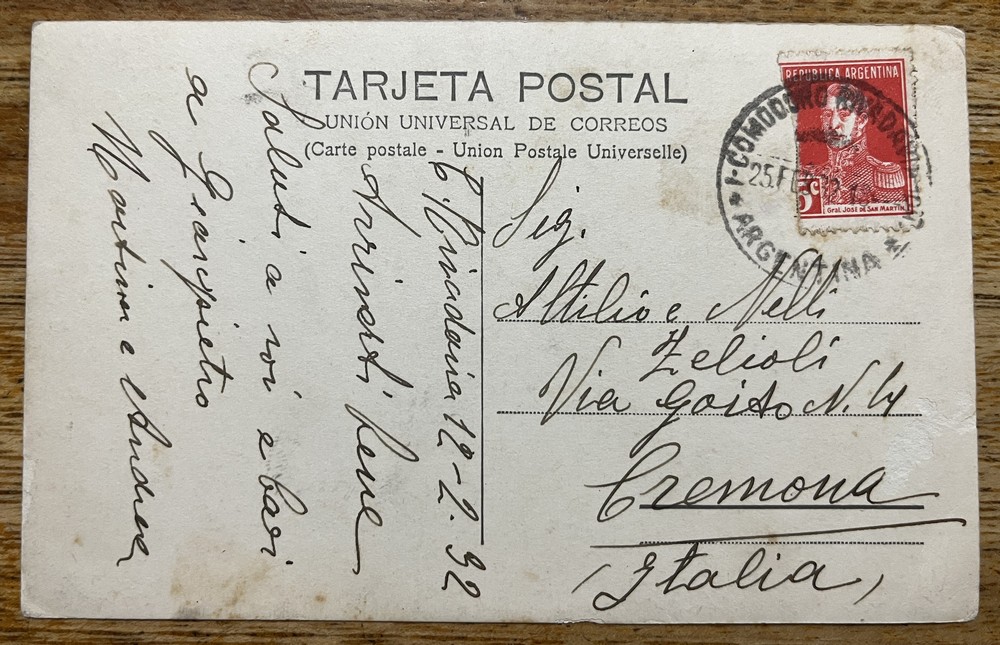 TARJETA POSTAL
UNIÓN UNIVERSAL DE CORREOS
(Carte postale - Union Postale Universelle)
REPUBLICA ARGENTINA
5c
Gral. José de San Martín
COMODORO RIVADAVIA
25.FEB
ARGENTINA
C. Rivadavia 12-2.32
Arrivati bene
Saluti a voi e baci
a Giacopietro
Martina e Andrea
Sig.
Attilio e Nelli
Zelioli
Via Goito N. 4
Cremona
(Italia)